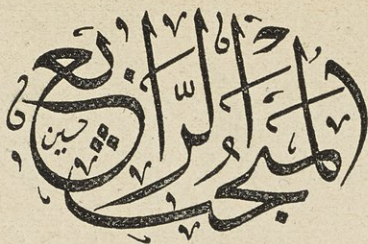 المجلد الرّابع
حسين